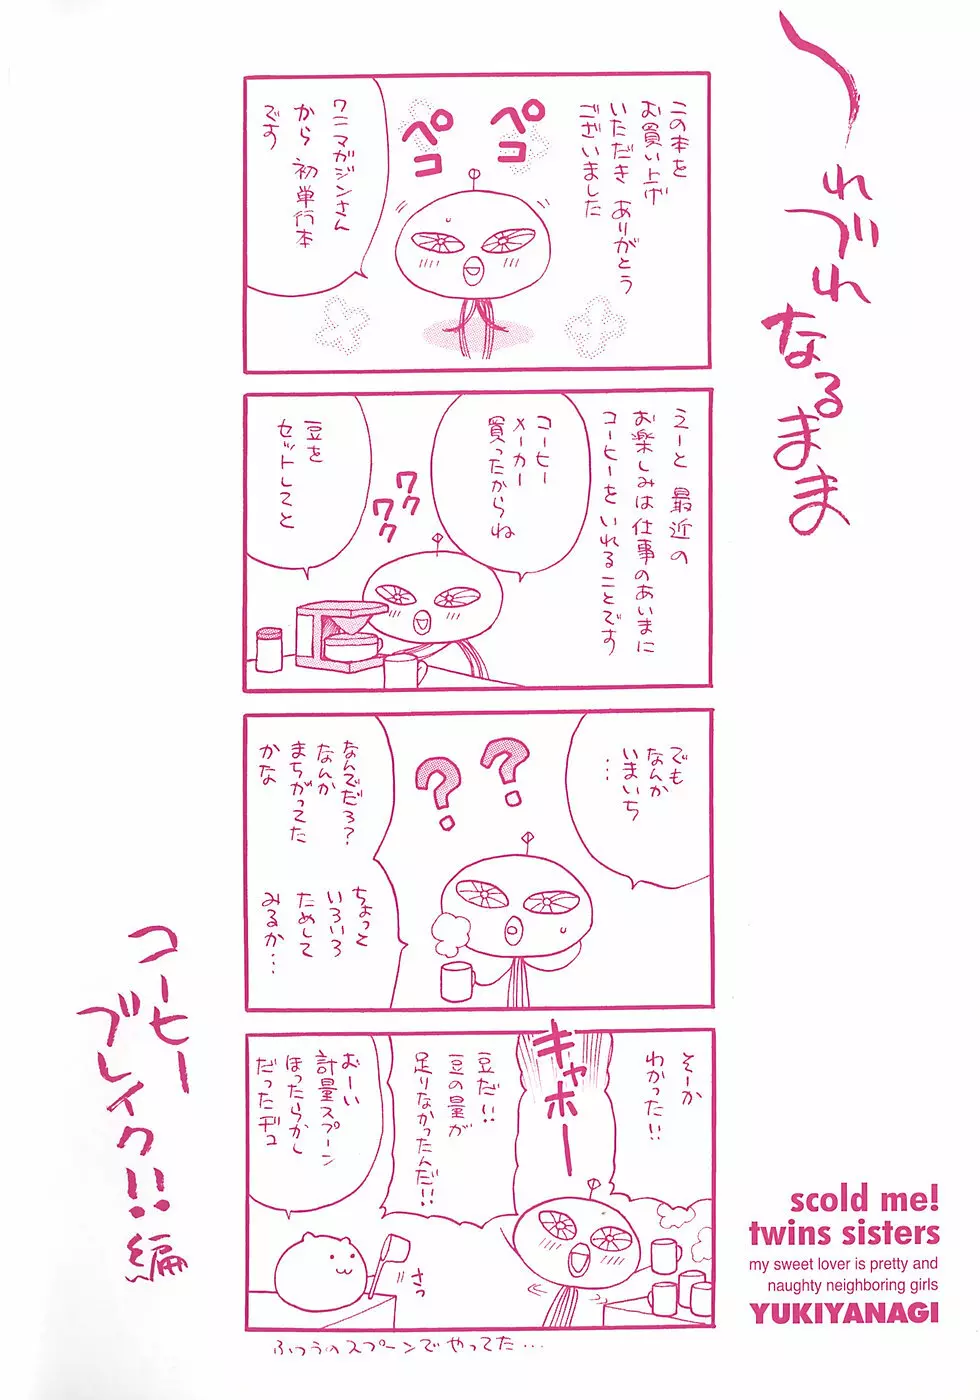 〜れづれなるまま
この本を
お買い上げ
いただき ありがとう
ございました
ペコ
ペコ
ワニマガジンさん
から 初単行本
です
えーと 最近の
お楽しみは仕事のあいまに
コーヒーをいれることです
コーヒー
メーカー
買ったからね
ワク
ワク
豆を
セットしてと
でも
なんか
いまいち
…
?
?
なんでだろ?
なんか
まちがってた
かな
ちょっと
いろいろ
ためして
みるか…
そーか
わかった!!
キャホー
豆だ!!
豆の量が
足りなかったんだ!!
おーい
計量スプーン
ほったらかし
だったヂュ
さっ
ふつうのスプーンでやってた…
コーヒー
ブレイク!!編
scold me!
twins sisters
my sweet lover is pretty and
naughty neighboring girls
YUKIYANAGI